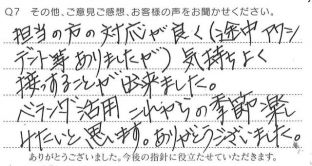 Q7 その他、ご意見ご感想、お客様の声をお聞かせください。
担当の方の対応が良く(途中アクシ
デント等ありましたが)気持ちよく
接することが出来ました。
ベランダ活用 これからの季節 楽し
みたいと思います。ありがとうございました。
ありがとうございました。今後の指針に役立たせていただきます。